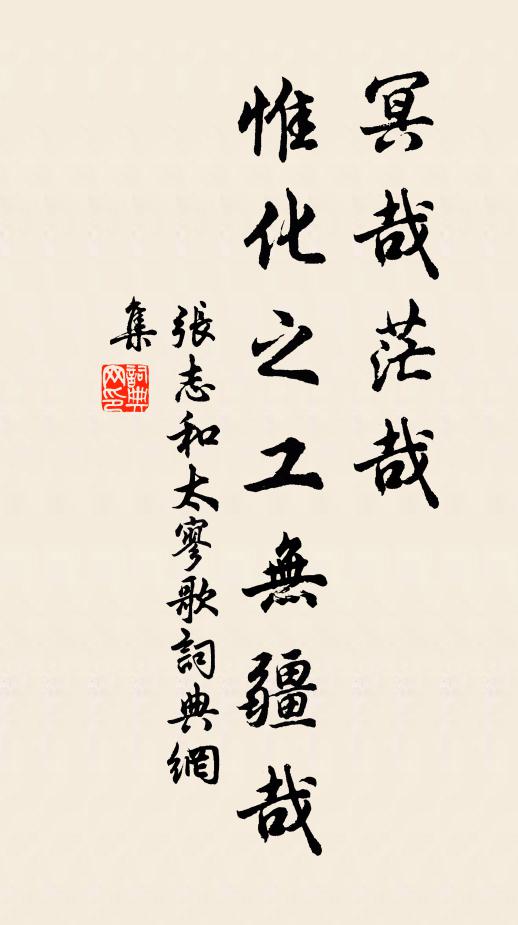 冥哉茫哉
惟化之工無疆哉
張志和太寥歌詞典網
集
詞典
网印